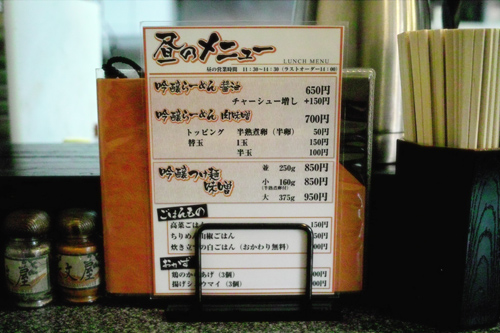 昼のメニュー
LUNCH MENU
昼の営業時間 11:30~14:30(ラストオーダー14:00)
吟醸らーめん 醤油 650円
チャーシュー増し +150円
吟醸らーめん 肉味噌 700円
トッピング 半熟煮卵(半卵) 50円
替玉 1玉 150円
半玉 100円
吟醸つけ麺 味噌
並 250g 850円
小 160g 850円
(半熟煮卵付)
大 375g 950円
ごはんもの
高菜ごはん 150円
ちりめん山椒ごはん
炊き立ての白ごはん(おかわり無料) 00円
おかず
鶏のから あげ(3個) 00円
揚げシュウマイ(3個) 00円